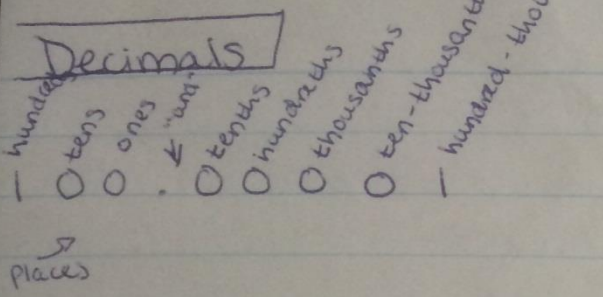 Decimals
hundreds tens ones "and" tenths hundreths thousanths ten-thousant hundred-thou
1 0 0 . 0 0 0 0 1
places